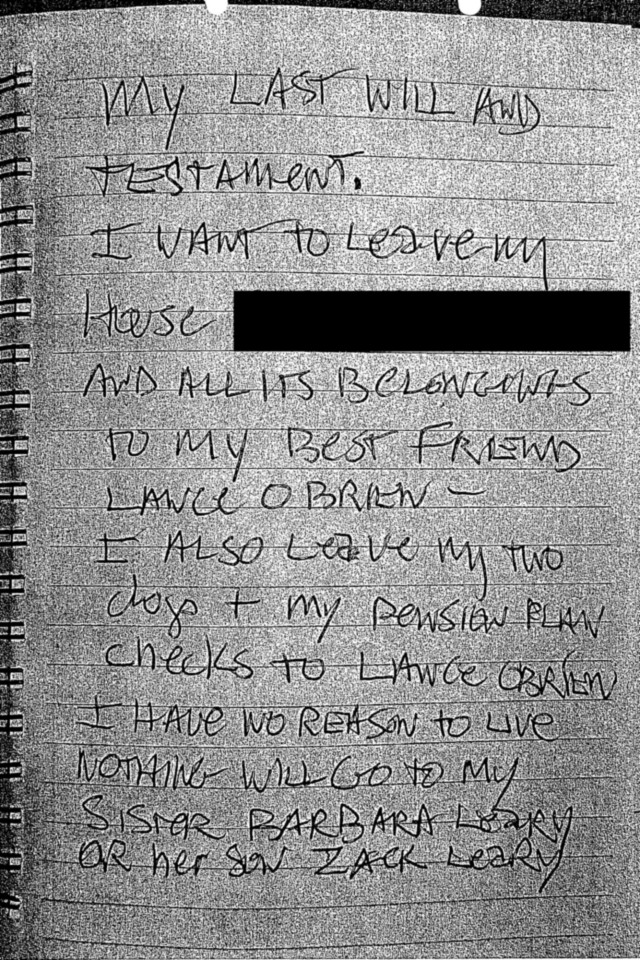 My LAST WILL AND
TESTAMENT.
I WANT TO Leave my
House
AND ALL ITS BELONGINGS
TO MY BEST FRIEND
LANCE O BRIEN –
I ALSO Leave my TWO
dogs + my PENSION PLAN
checks TO LANCE OBRIEN
I HAVE NO REASON to LIVE
NOTHING WILL GO to MY
SISTER BARBARA LEARY
OR her SON ZACK LEARY